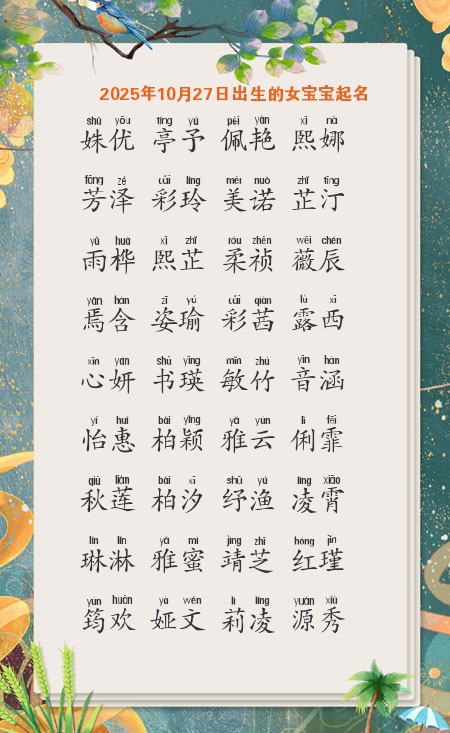 2025年10月27日出生的女宝宝起名
shū yōu tíng yú pèi yàn xī nà
姝优 亭予 佩艳 熙娜
fāng zé cǎi líng měi nuò zhǐ tīng
芳泽 彩玲 美诺 芷汀
yǔ huà xī zhǐ róu zhēn wēi chén
雨桦 熙芷 柔祯 薇辰
yān hán zī yú cǎi qiàn lù xī
焉含 姿瑜 彩茜 露西
xīn yán shū yīng mǐn zhú yīn hán
心妍 书瑛 敏竹 音涵
yí huì bǎi yǐng yǎ yún lì fēi
怡惠 柏颖 雅云 俐霏
qiū lián bǎi xī shū yú líng xiāo
秋莲 柏汐 纾渔 凌霄
lín lín yǎ mì jìng zhī hóng jǐn
琳淋 雅蜜 靖芝 红瑾
yún huān yà wén lì líng yuán xiù
筠欢 娅文 莉凌 源秀